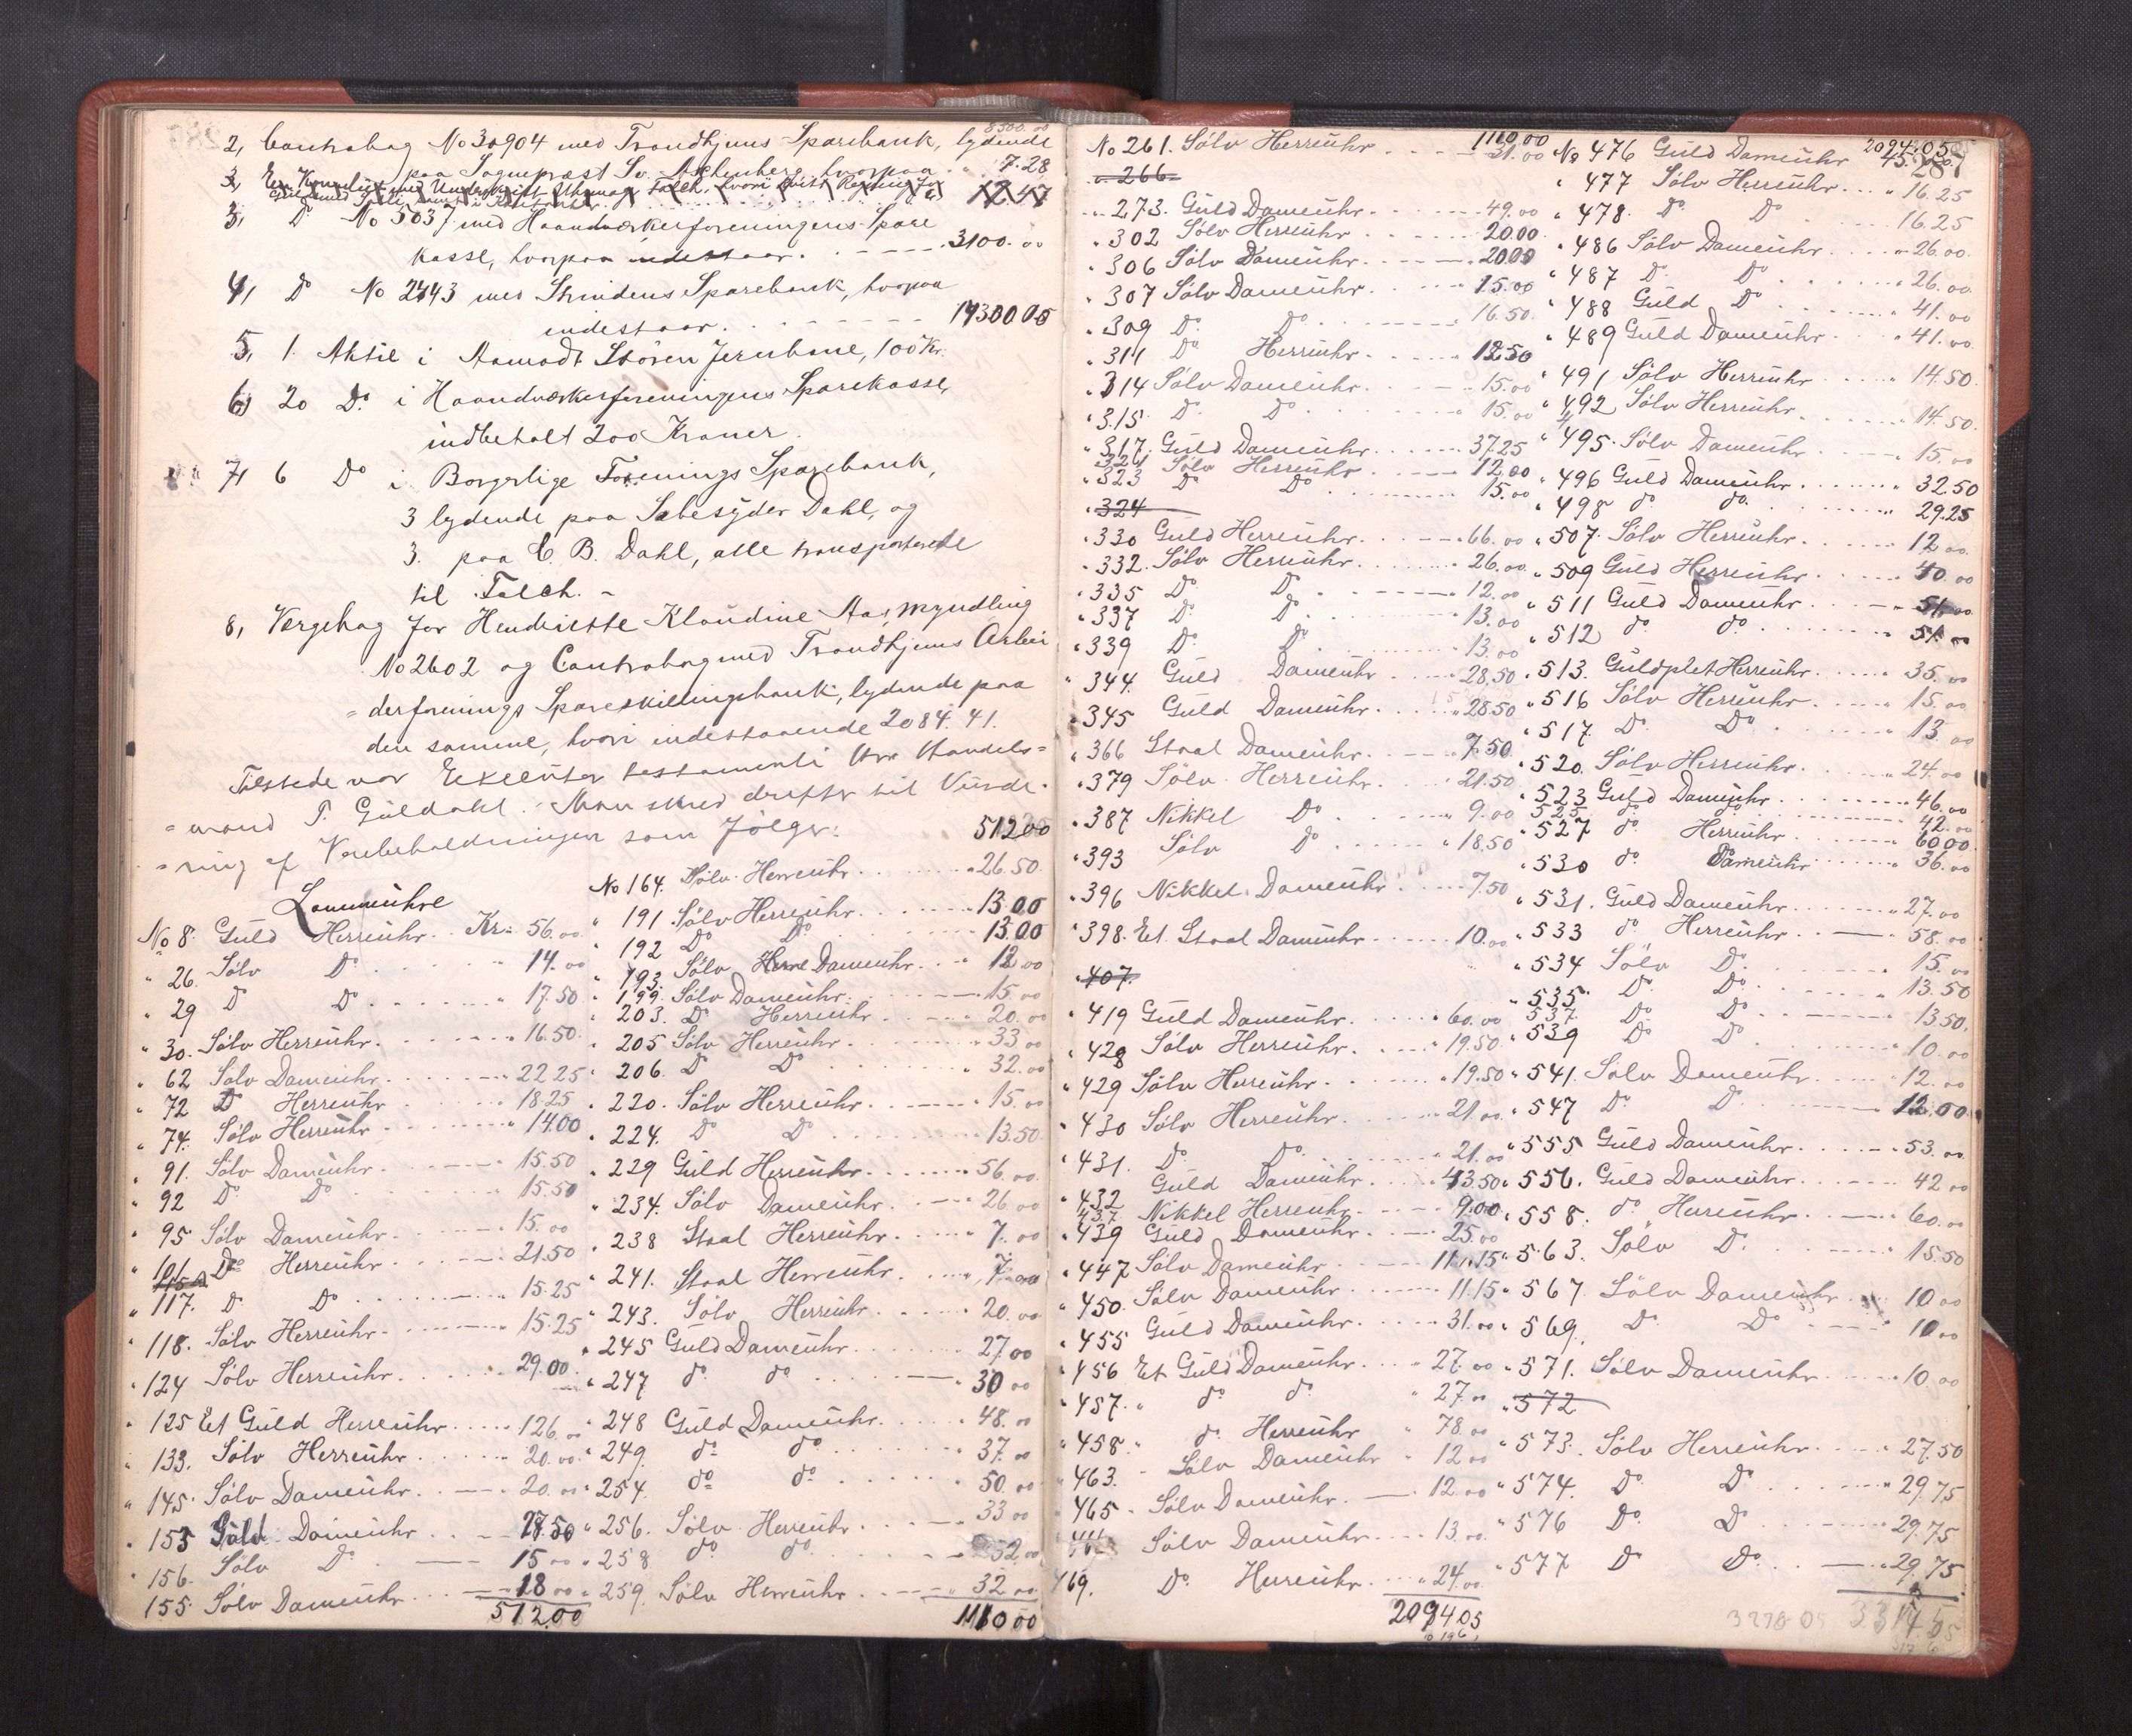 8300.00
2, Contrabog No 30904 med Trondhjems Sparebank, lydende
paa Sogneprest Sv. Aschenberg, hvorpaa 7.28
12.47
3, Do No 5037 med Haandværkerforeningens Spare
kasse, hvorpaa indestaar. 3100.00
4, Do No 2443 med Strindens Sparebank, hvorpaa
indestaar.
5, 1 Aktie i Aamodt Støren Jernbane, 100 Kr.
6, 20 Do. i Haandværkerforeningens Sparekasse,
indbetalt 200 Kroner.
7, 6 Do i Borgerlige Forenings Sparebank,
3 lydende paa Sæbesyder Dahl, og
3. paa C. B. Dahl, alle transporterede
til Falch.
8, Værgebog for Hendriette Klaudine Aas, Myndling
No 2602 og Contrabog med Trondhjems Arbei
derforenings Spareskillingsbank, lydende paa
den samme, hvori indestaaende 2084.41.
Tilstede var Executor testamenti Hrr Handels=
=mand P. Guldahl. Man skred derefter til Vurde=
=ring af Varebeholdningen som følger:
Lommeuhre
No 8. Guld Herreuhr. Kr. 56.00
" 26. Sølv Do. 14.00
" 29 Do Do. 17.50
" 30. Sølv Herreuhr. 16.50
" 62 Sølv Dameuhr. 22.25
" 72 Do Herreuhr 18.25
" 74. Sølv Herreuhr 14.00
" 91. Sølv Dameuhr. 15.50
" 92 Do. Do. 15.50
" 95 Sølv Dameuhr. 15.00
" 101 Do Herreuhr. 21.50
" 117. Do Do. 15.25
" 118. Sølv Herreuhr. 15.25
" 124 Sølv Herreuhr. 29.00
" 125 Et Guld Herreuhr. 126.00
" 133. Sølv Herreuhr 20.00
" 145. Sølv Dameuhr. 20.00
" 153 Guld Dameuhr 28.50
" 156. Sølv Do. 15.00
" 155. Sølv Dameuhr. 18.00
512.00
512.00
No 164. Sølv Herreuhr. 26.50
" 191 Sølv Herreuhr. 13.00
" 192 Do Do. 13.00
" 193. Sølv Dameuhr. 12.00
" 199. Sølv Dameuhr. 15.00
" 203. Do Herreuhr 20.00
" 205 Sølv Herreuhr. 33.00
" 206. Do Do 32.00
" 220. Sølv Herreuhr. 15.00
" 224. Do Do 13.50
" 229 Guld Herreuhr. 56.00
" 234. Sølv Dameuhr. 26.00
" 238 Staal Herreuhr. 7.00
" 241. Staal Herreuhr. 7.00
" 243. Sølv Herreuhr. 20.00
" 245 Guld Dameuhr. 27.00
" 247 do do 30.00
" 248 Guld Dameuhr. 48.00
" 249. do do 37.00
" 254. do do 50.00
" 256. Sølv Herreuhr. 33.00
" 258 do do. 32.00
" 259. Sølv Herreuhr 32.00
1110.00
1110.00
No 261. Sølv Herreuhr 31.00
" 266
" 273. Guld Dameuhr. 49.00
" 302 Sølv Herreuhr 20.00
" 306 Sølv Dameuhr. 20.00
" 307 Sølv Dameuhr. 15.00
" 309 Do. Do. 16.50
" 311 Do Herreuhr. 12.50
" 314 Sølv Dameuhr. 15.00
" 315. Do. Do. 15.00
" 317. Guld Dameuhr. 37.25
321 Sølv Herreuhr. 12.00
" 323 Do Do. 15.00
" 324
" 330 Guld Herreuhr. 66.00
" 332. Sølv Herreuhr. 26.00
" 335 Do. Do. 12.00
" 337 Do. Do. 13.00
" 339 Do. Do. 13.00
" 344. Guld Dameuhr 28.50
" 345 Guld Dameuhr. 28.50
" 366 Staal Dameuhr. 7.50
" 379 Sølv Herreuhr. 21.50
" 387 Nikkel Do. 9.00
" 393 Sølv Do. 18.50
" 396 Nikkel Dameuhr 7.50
" 398. Et Staal Dameuhr 10.00
" 407.
" 419 Guld Dameuhr. 60.00
" 428 Sølv Herreuhr. 19.50
" 429 Sølv Herreuhr. 19.50
" 430 Sølv Herreuhr. 21.00
" 431. Do. Do. 21.00
" 432 Guld Dameuhr. 43.50
437 Nikkel Herreuhr. 9.00
" 439 Guld Dameuhr. 25.00
" 447 Sølv Dameuhr 11.15
" 450. Sølv Dameuhr. 11.15
" 455 Guld Dameuhr. 31.00
" 456 Et Guld Dameuhr. 27.00
" 457. " do do. 27.00
" 458 " do. Herreuhr 78.00
" 463. Sølv Dameuhr 12.00
" 465 Sølv Dameuhr. 12.00
Sølv Dameuhr. 13.00
469. Do. Herreuhr. 24.00
2094.05
2094.05
287
No 476 Guld Dameuhr 45.00
" 477 Sølv Herreuhr. 16.25
" 478. Do. Do. 16.25
" 486 Sølv Dameuhr. 26.00
" 487 Do. Do. 26.00
" 488 Guld Do. 41.00
" 489 Guld Dameuhr. 41.00
" 491 Sølv Herreuhr. 14.50
" 492 Sølv Herreuhr. 14.50
" 495. Sølv Dameuhr 15.00
" 496 Guld Dameuhr. 32.50
" 498 do do. 29.25
" 507. Sølv Herreuhr. 12.00
" 509 Guld Herreuhr. 40.00
" 511 Guld Dameuhr. 51.00
" 512 do do. 51.00
" 513. Guldplet Herreuhr. 35.00
" 516 Sølv Herreuhr 15.00
" 517 Do. Do 13.00
" 520. Sølv Herreuhr. 24.00
" 523 Guld Dameuhr. 46.00
525 do. do. 42.00
" 527 do. Herreuhr 60.00
" 530 do. Dameuhr 36.00
" 531. Guld Dameuhr. 27.00
" 533 do. Herreuhr. 58.00
" 534 Sølv Do. 15.00
" 535 Do. Do. 13.50
537. Do Do. 13.50
" 539 Do Do 10.00
" 541. Sølv Dameuhr. 12.00
" 547 Do. Do. 12.00
" 555 Guld Dameuhr. 53.00
" 556. Guld Dameuhr. 42.00
" 558. do. Herreuhr. 60.00
" 563. Sølv Do. 15.50
" 567. Sølv Dameuhr. 10.00
" 569. Do. Do. 10.00
" 571. Sølv Dameuhr. 10.00
" 572
" 573. Sølv Herreuhr. 27.50
" 574. Do. Do. 29.75
" 576 Do. Do. 29.75
" 577 Do Do. 29.75
3278 05 3314.05